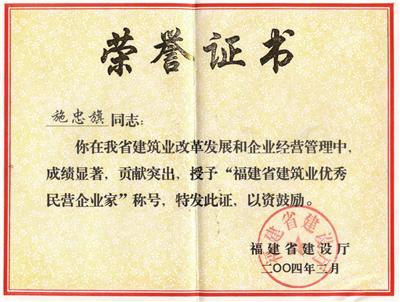 荣誉证书
施忠旗同志：
你在我省建筑业改革发展和企业经营管理中，
成绩显著，贡献突出，授予“福建省建筑业优秀
民营企业家”称号，特发此证，以资鼓励。
福建省建设厅
二〇〇四年三月
福建省建设厅